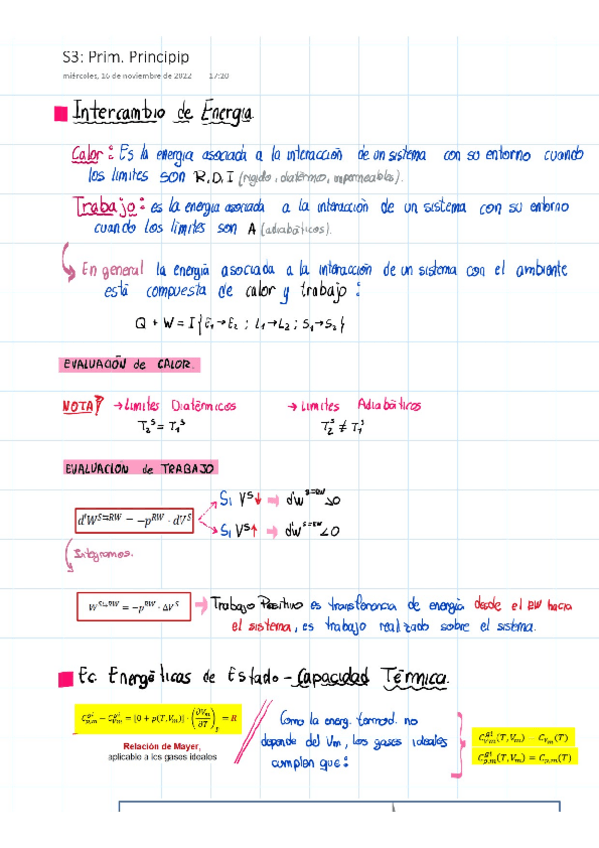 S3: Prim. Principip
miércoles, 16 de noviembre de 2022 17:20
Intercambio de Energía
Calor: Es la energía asociada a la interacción de un sistema con su entorno cuando
los límites son R.D.I (rígido, diatérmico, impermeables).
Trabajo: es la energía asociada a la interacción de un sistema con su entorno
cuando los límites son A (adiabáticos).
En general la energía asociada a la interacción de un sistema con el ambiente
está compuesta de calor y trabajo:
Q + W = I {E₁→E₂ ; L₁→L₂ ; S₁→S₂}
EVALUACIÓN de CALOR.
NOTA → Límites Diatérmicos → Límites Adiabáticos
T₂ˢ = T₁ˢ T₂ˢ ≠ T₁ˢ
EVALUACIÓN de TRABAJO
Si Vˢ↓ ⇒ d'W^{S≡RW} >0
d'W^{S≡RW} = −p^{RW} · dV^S
Si Vˢ↑ ⇒ d'W^{S≡RW} <0
Integramos.
W^{S↔RW} = −p^{RW} · ΔV^S → Trabajo Positivo es transferencia de energía desde el RW hacia
el sistema, es trabajo realizado sobre el sistema.
Ec. Energéticas de Estado - Capacidad Térmica.
C^{gi}_{p,m} − C^{gi}_{Vm} = [0 + p(T,Vₘ)] · (∂Vₘ/∂T)_p = R
Relación de Mayer,
aplicable a los gases ideales
Como la energ. termod. no
depende del Vm, los gases ideales
cumplen que:
C^{gi}_{Vm}(T,Vₘ) = C_{Vm}(T)
C^{gi}_{p,m}(T,Vₘ) = C_{p,m}(T)